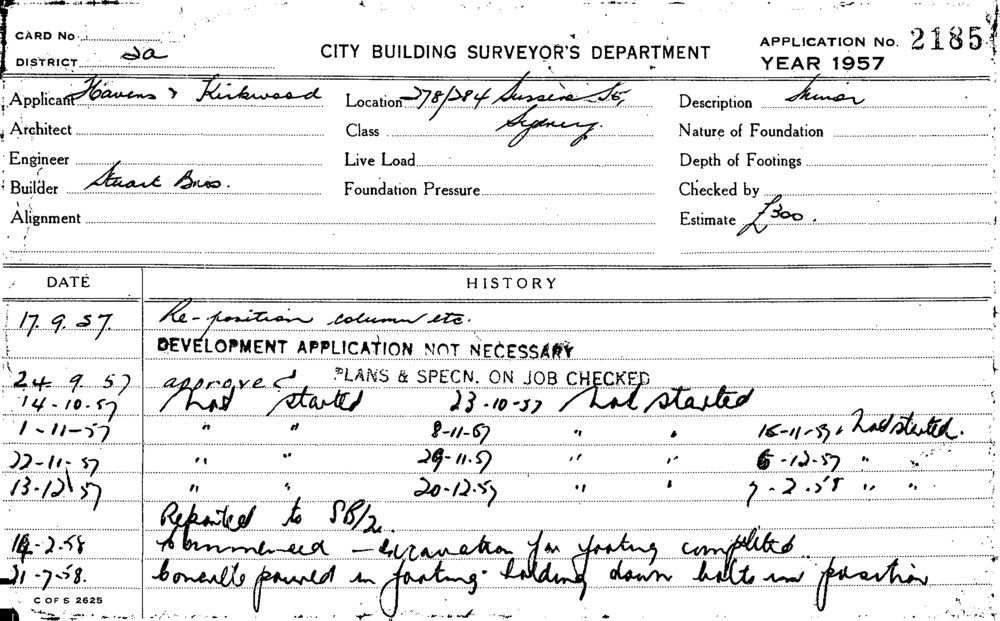 CARD No
DISTRICT 2a
CITY BUILDING SURVEYOR'S DEPARTMENT
APPLICATION No. 2185
YEAR 1957
Applicant Havens & Kirkwood
Location 278/284 Sussex St,
Sydney.
Description Minor
Architect
Class
Nature of Foundation
Engineer
Live Load
Depth of Footings
Builder Stuart Bros.
Foundation Pressure
Checked by
Alignment
Estimate £300.
DATE HISTORY
17.9.57. Re-position column etc.
DEVELOPMENT APPLICATION NOT NECESSARY
24 9.57 approved PLANS & SPECN. ON JOB CHECKED
14-10-57 started 23-10-57 started
1-11-57 " " 8-11-57 " " 15-11-57 started.
22-11-57 " " 29-11-57 " " 6-12-57 " "
13-12-57 " " 20-12-57 " " 7-2-58 " "
Reported to SB/2a.
-2-58 Commenced - excavation for footing completed
-58. Concrete poured in footing - holding down bolts in position
C OF S 2625